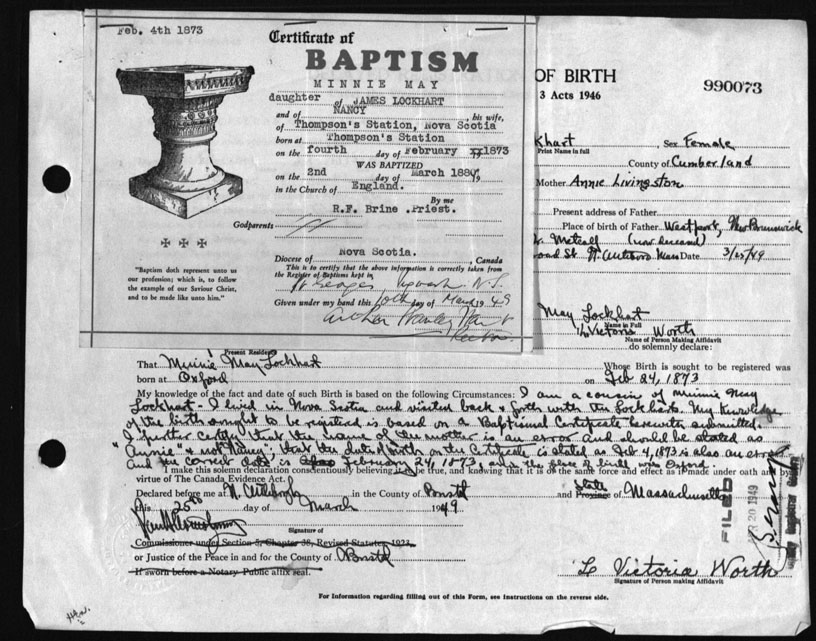 Feb. 4th 1873
Certificate of
BAPTISM
MINNIE MAY
daughter of JAMES LOCKHART
and of NANCY, his wife,
of Thompson's Station, Nova Scotia
born at Thompson's Station
on the fourth day of February 1873
WAS BAPTIZED
on the 2nd day of March 188
in the Church of England.
By me
R.F. Brine .Priest.
Godparents
Diocese of Nova Scotia. , Canada
This is to certify that the above information is correctly taken from
the Register of Baptisms kept in
St Georges Pugwash N.S.
Given under my hand this 10th day of March 1949
Rector
"Baptism doth represent unto us
our profession; which is, to follow
the example of our Saviour Christ,
and to be made like unto him."
OF BIRTH
3 Acts 1946
990073
khart Sex Female
Print Name in full
County of Cumberland
Mother Annie Livingston
Present address of Father
Place of birth of Father Westport, New Brunswick
Metcalf (now deceased)
oad St. N. Attleboro Mass Date 3/25/49
May Lockhart
Name in Full
L Victoria Worth
Name of Person Making Affidavit
do solemnly declare:
Present Residence
That Minnie May Lockhart Whose Birth is sought to be registered was
born at Oxford on Feb 24, 1873
My knowledge of the fact and date of such Birth is based on the following Circumstances: I am a cousin of Minnie May
Lockhart - I lived in Nova Scotia and visited back & forth with the Lockharts. My Knowledge
of the birth sought to be registered is based on a Baptismal Certificate herewith submitted.
I further certify that the name of the mother is an error and should be stated as
"Annie" & not Nancy; that the date of birth on the Certificate is stated as Feb 4, 1873 is also an error
and the correct date is February 24, 1873, and the place of birth was Oxford.
I make this solemn declaration conscientiously believing it to be true, and knowing that it is of the same force and effect as if made under oath and by
virtue of The Canada Evidence Act.
Declared before me at N. Attleboro in the County of Bristol and State Province of Massachusetts
this 25th day of March 1949
Signature of
Commissioner under Section 5, Chapter 38, Revised Statutes 1923
or Justice of the Peace in and for the County of Bristol
If sworn before a Notary Public affix seal.
L Victoria Worth
Signature of Person making Affidavit
FILED
20 1949
For Information regarding filling out of this Form, see instructions on the reverse side.